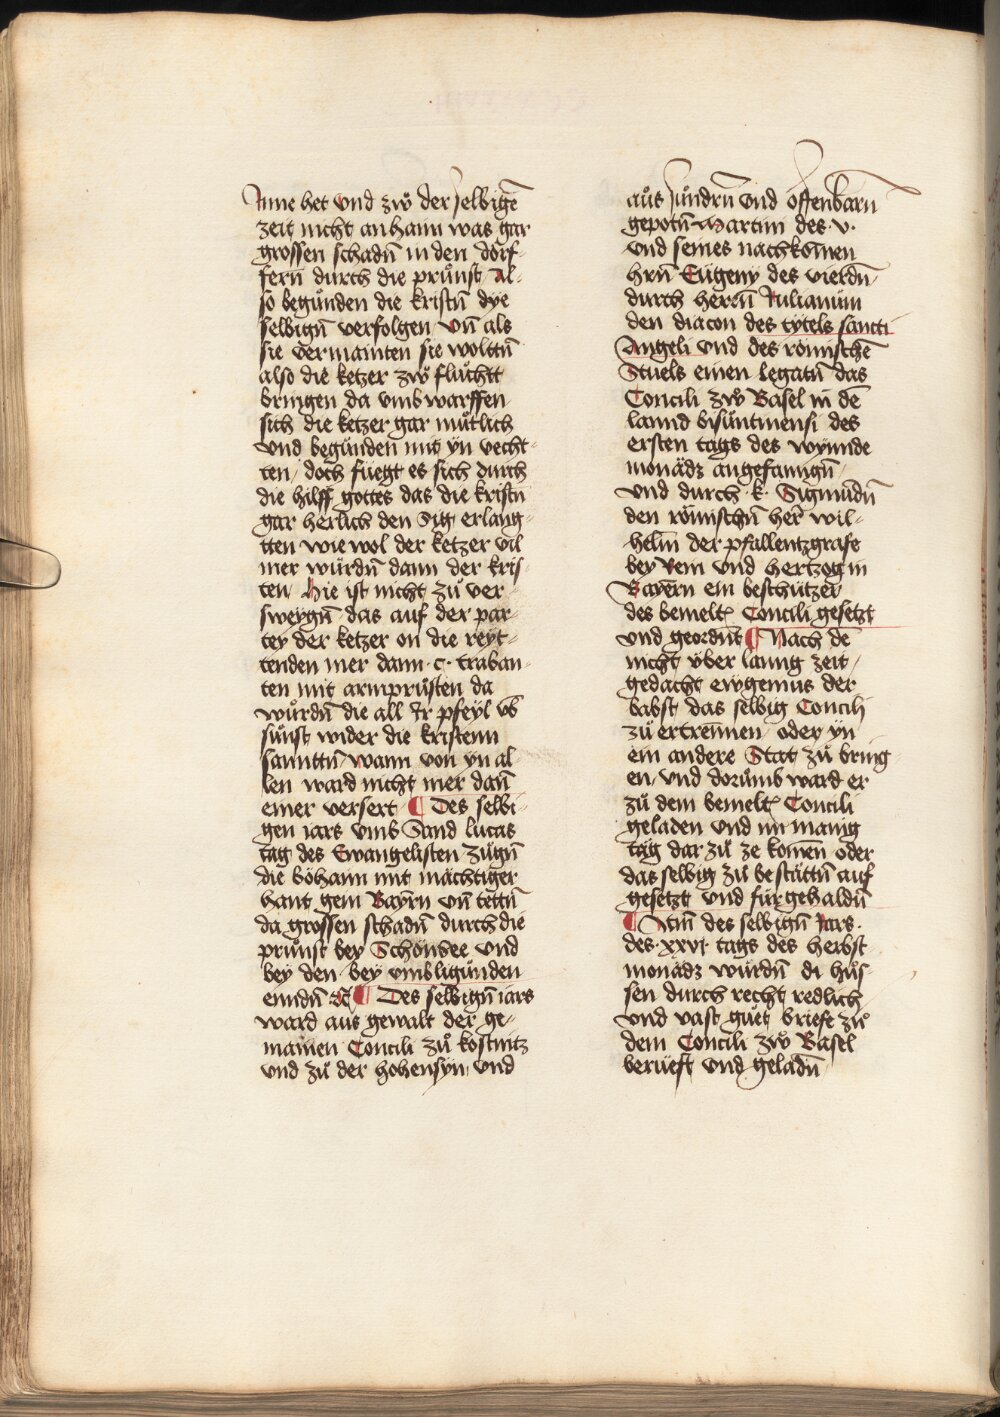 Inne het vnd zwͦ der selbigē
zeit nicht anhaim was gar
grossen schadn̄ in den dorf-
fern̄ durch die průnst Al-
so begůnden die kristn̄ dye
selbign̄ verfolgen vn̄ als
sie vermainten sie wolttn̄
also die ketzer zwͦ flůchtt
bringen da vmbwarffen
sich die ketzer gar můtlich
vnd begůnden mit yn vecht-
ten / doch füegt es sich durch
die hilff gottes das die kristn̄
gar herlich den Sig erlang-
tten wie wol der ketzer vil
mer wůrdn̄ dann der kris-
ten / Hie ist nicht zů ver-
sweygn̄ das auf der par-
tey der ketzer on die reyt-
tenden mer dann ·c· traban-
ten mit armprůsten da
wůrdn̄ die all Ir pfeyl vb̄
sůnst wider die kristenn
sanntn̄ wann von yn al-
len ward nicht mer dan̄
einer versert ¶ Des selbi-
gen iars vmb Sand lucas
tag des Ewangelisten zůgn̄
die böhaim mit mächtiger
hant gein Bayrn̄ vn̄ tettn̄
da grossen schadn̄ durch die
průnst bey Schönsee vnd
bey den bey vmbligůnden
enndn̄ ⁊c̄ ¶ Des selbign̄ iars
ward aus gewalt der ge-
mainen Concili zů kostnitz
vnd zů der hohensyn vnd
aůs sůndrn̄ vnd offenbarn̄
gepotn̄ Martini des ·v·
vnd seines nachkōmen
hrn̄ Eůgeny des vierdn̄
durch herrn̄ Iulianum
den diacon des tytels sancti
Angeli vnd des römischē
Stuels einen legatn̄ das
Concili zwͦ Basel in dē
lannd bisůntinensi des
ersten tags des wynnde
monäds angefanngn̄
vnd durch ·k· Sigmůdn̄
den römischn̄ her̄ wil-
helm der pfallentzgrafe
bey Rein vnd hertzog in
Bayern̄ ein beschützer
des bemelt̄ Concili gesetzt
vnd geordn̄t ¶ Nach de
nicht yber lanng zeit /
gedacht ewgenius der
babst das selbig Concili
zů ertrēnnen oder yn
ein andere Stat zů bring-
en / vnd dorůmb ward er
zů dem bemelt̄ Concili
geladen vnd im mänig
täg dar zů ze komēn oder
das selbig zů bestättn̄ auf
gesetzt vnd fürgehaldn̄
¶ Item̄ des selbign̄ Iars·
des ·xxvi· tags des herbst-
monäds wůrdn̄ di hůs-
sen durch recht redlich
vnd vast gůet briefe zů
dem Concili zwͦ Basel
berüeft vnd geladn̄